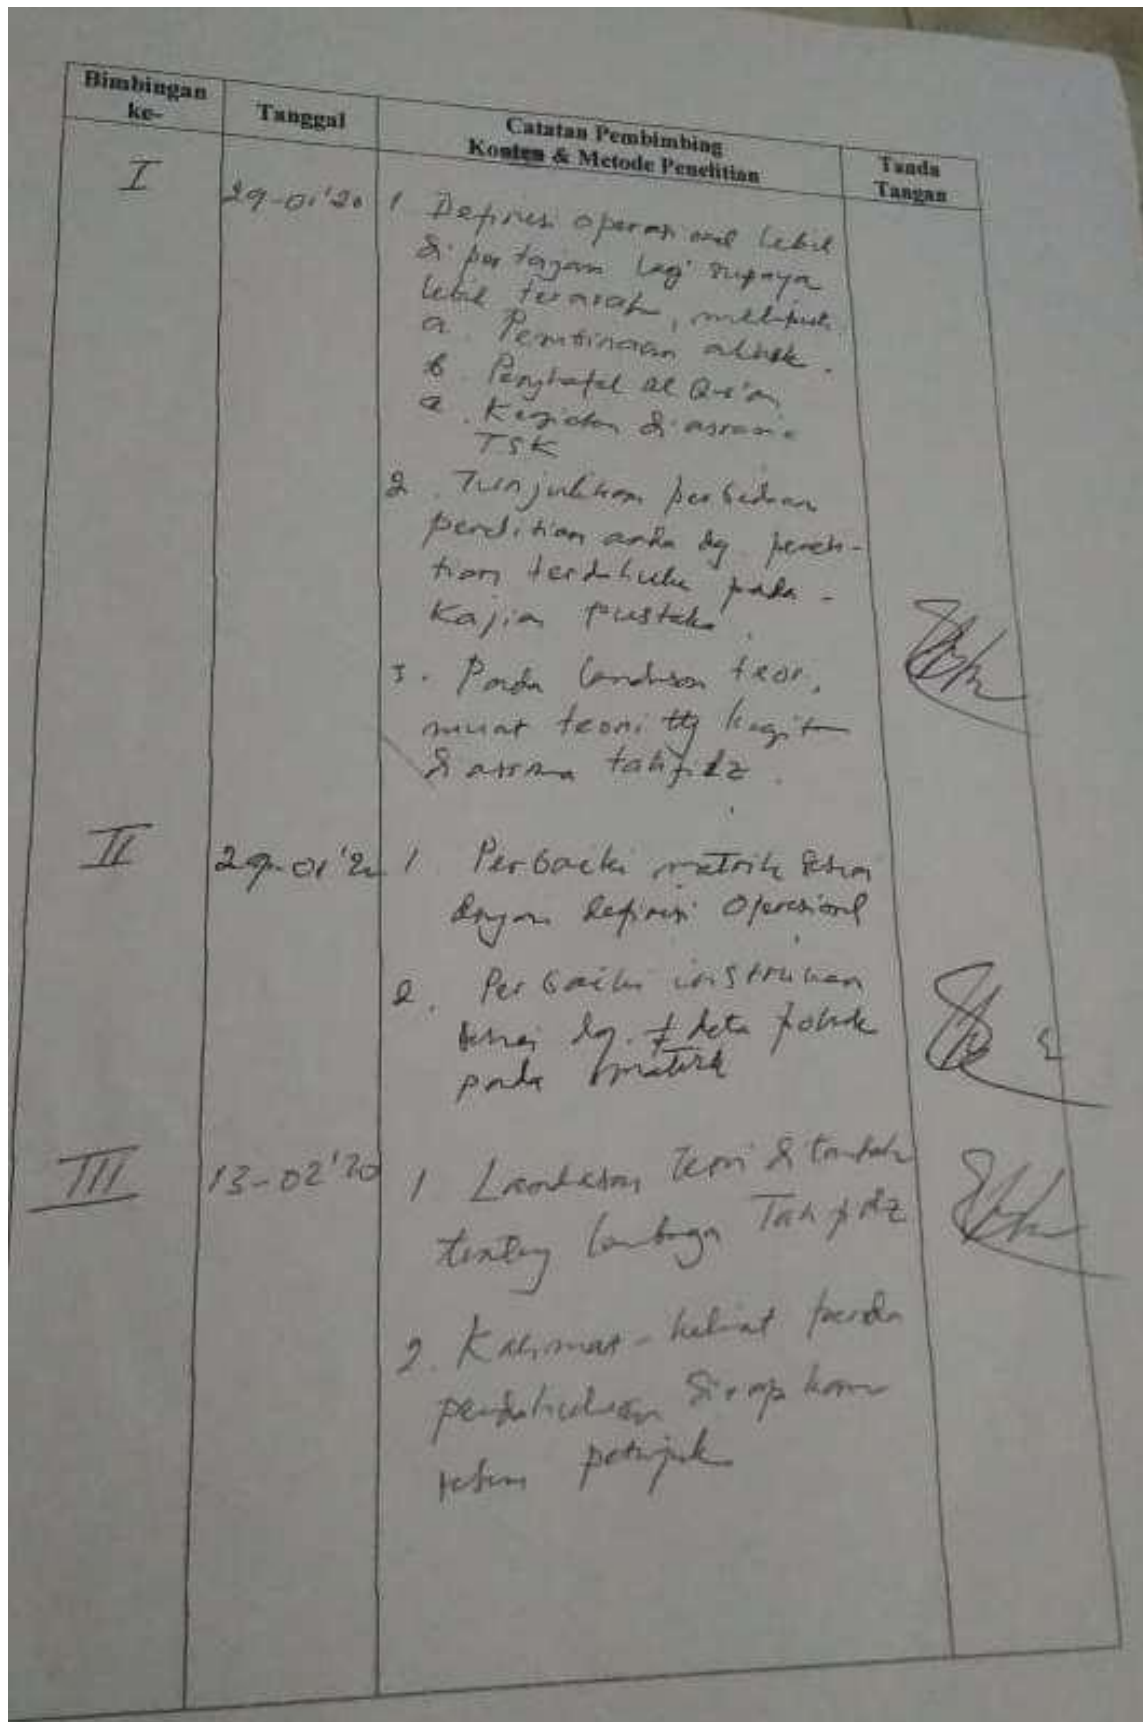 Bimbingan
ke-
Tanggal
Catatan Pembimbing
Konten & Metode Penelitian
Tanda
Tangan
I
29-01'20
1 Definisi operasional lebih
di pertajam lagi supaya
lebih terarah, meliputi
a. Pembinaan akhlak.
b. Penghafal Al Qur'an
Kegiatan di asrama
TSK
2. Tunjukkan perbedaan
penelitian anda dg. peneli-
tian terdahulu pada -
Kajian pustaka.
3. Pada landasan teori,
muat teori ttg kegiat
di asrama tahfidz.
II
29-01'20
1. Perbaiki matrik sesuai
dengan definisi operasional
2. Perbaiki instrumen
sesuai dg. data pokok
pada matrik
III
13-02'20
1 Landasan teori ditambah
tentang lembaga Tahfidz
2. Kalimat-kalimat pada
pendahuluan
sesuai petunjuk